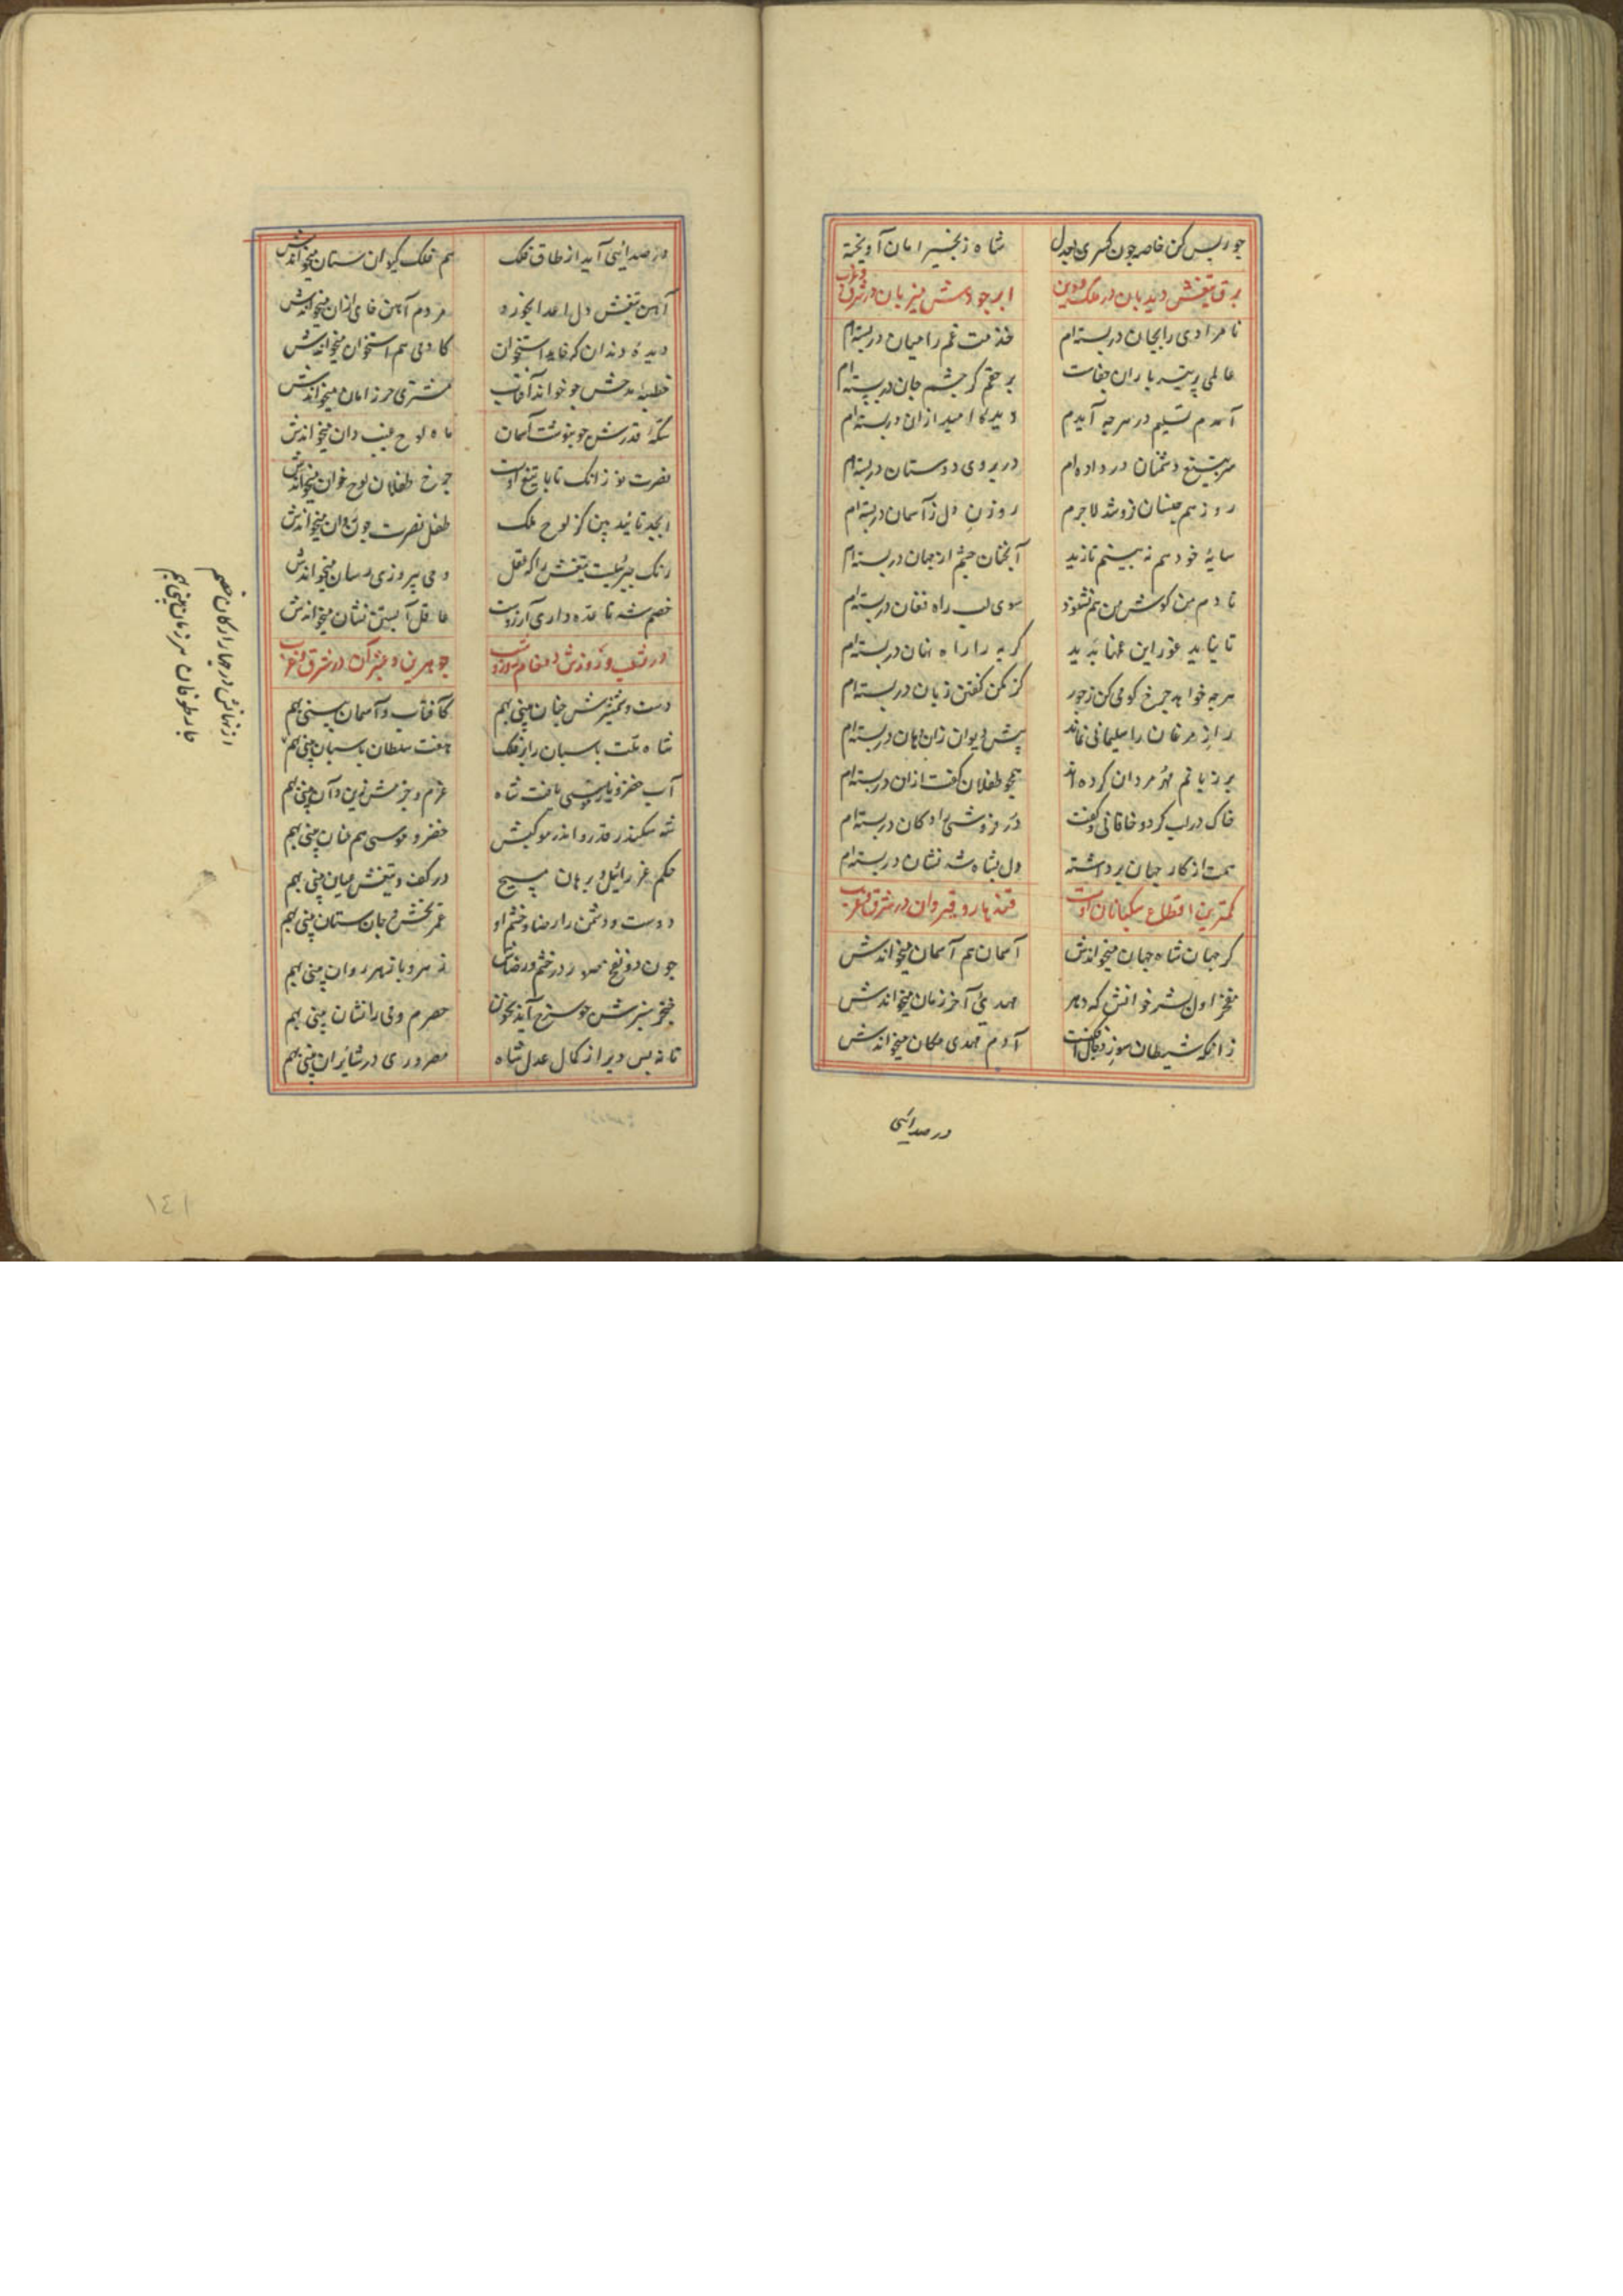 جور بس کن خاصه چون کسری بعدل شاه زنجیر امان آویخته
برق تیغش دیدبان در ملک و دین ابر جودش میزبان در شرق و غرب
نامرادی را بجان دربسته‌ام خدمت غم را میان دربسته‌ام
عالمی پر تیر باران جفاست بر حقم کر چشم جان دربسته‌ام
آمدم تسلیم در هرچه آیدم دیده کا امید ازان دربسته‌ام
سر بتیغ دشمنان در داده‌ام در بروی دوستان دربسته‌ام
روز هم جنسان فروشد لاجرم روزن دل زآسمان دربسته‌ام
سایهٔ خود هم نه بینم تا زید آنچنان چشم از جهان دربسته‌ام
تا دم من کوش من هم نشنود سوی لب راه فغان دربسته‌ام
تا نیاید غور این غمها پدید کریه را راه نهان دربسته‌ام
هرچه خواهد چرخ کو می‌کن زجور کز مکن کفتن زبان دربسته‌ام
راز مرغان را سلیمانی نماند پیش دیوان زان دهان دربسته‌ام
بر زبانم مهر مردان کرده‌اند همچو طفلان کفت ازان دربسته‌ام
خاک دراب کرد و خاقانی و کفت در فروشی را دکان دربسته‌ام
همت از کار جهان برداشته دل بشاه شه نشان دربسته‌ام
کمترین اقطاع سکبانان اوست قندهار و قیروان در شرق و غرب
کر جهان شاه جهان میخواندش آسمان هم آسمان میخواندش
مفخر اول بشر خوانش که دهر مهدی آخر زمان میخواندش
زانکه شیطان سوز و دجال افکنست آدم مهدی مکان میخواندش
در صدائی
در صدائی آید از طاق فلک هم فلک کیوان ستان میخواندش
آهن تیغش دل اعدا بخورد مردم آهن خای ازان میخواندش
دیده دندان که خاید استخوان کادمی هم استخوان میخواندش
خطبهٔ مدحش چو خواند آفتاب مشتری حرز امان میخواندش
سکهٔ قدرش چو بنوشت آسمان ماه لوح غیب دان میخواندش
نصرت نو زانک تابا تیغ اوست چرخ طفلان لوح خوان میخواندش
ابجد تائید بین کز لوح ملک طفل نصرت چون روان میخواندش
رنک جبرئیلست تیغش را که عقل وحی پیروزی رسان میخواندش
خصم شد تا غده داری آرزوست عاقل آبستن نشان میخواندش
در شب و روزش دو خادم جوهرین و عنبر آن در شرق و غرب
دست و شمشیرش چنان بینی بهم کافتاب و آسمان بینی بهم
شاه ملت پاسبان را بر فلک هفت سلطان پاسبان بینی بهم
آب خضر و نار موسی یافت شاه عزم و حزمش زین و آن بینی بهم
شه سکندر قدر و اندر موکبش خضر و موسی هم عنان بینی بهم
حکم عزرائیل و برهان مسیح در کف و تیغش عیان بینی بهم
دوست و دشمن را رضا و خشم او عمر بخش و جان ستان بینی بهم
چون دو نفخ صور در خشم و رضاش زهر و پازهر روان بینی بهم
خنجر سبزش چو سرخ آید بخون حصرم و می را نشان بینی بهم
تا نه بس دیر از کمال عدل شاه مصر و ری در شابران بینی بهم
از نهانش در چهار ارکان خصم
چار طوفان هر زمان بینی بهم
۱٤۱